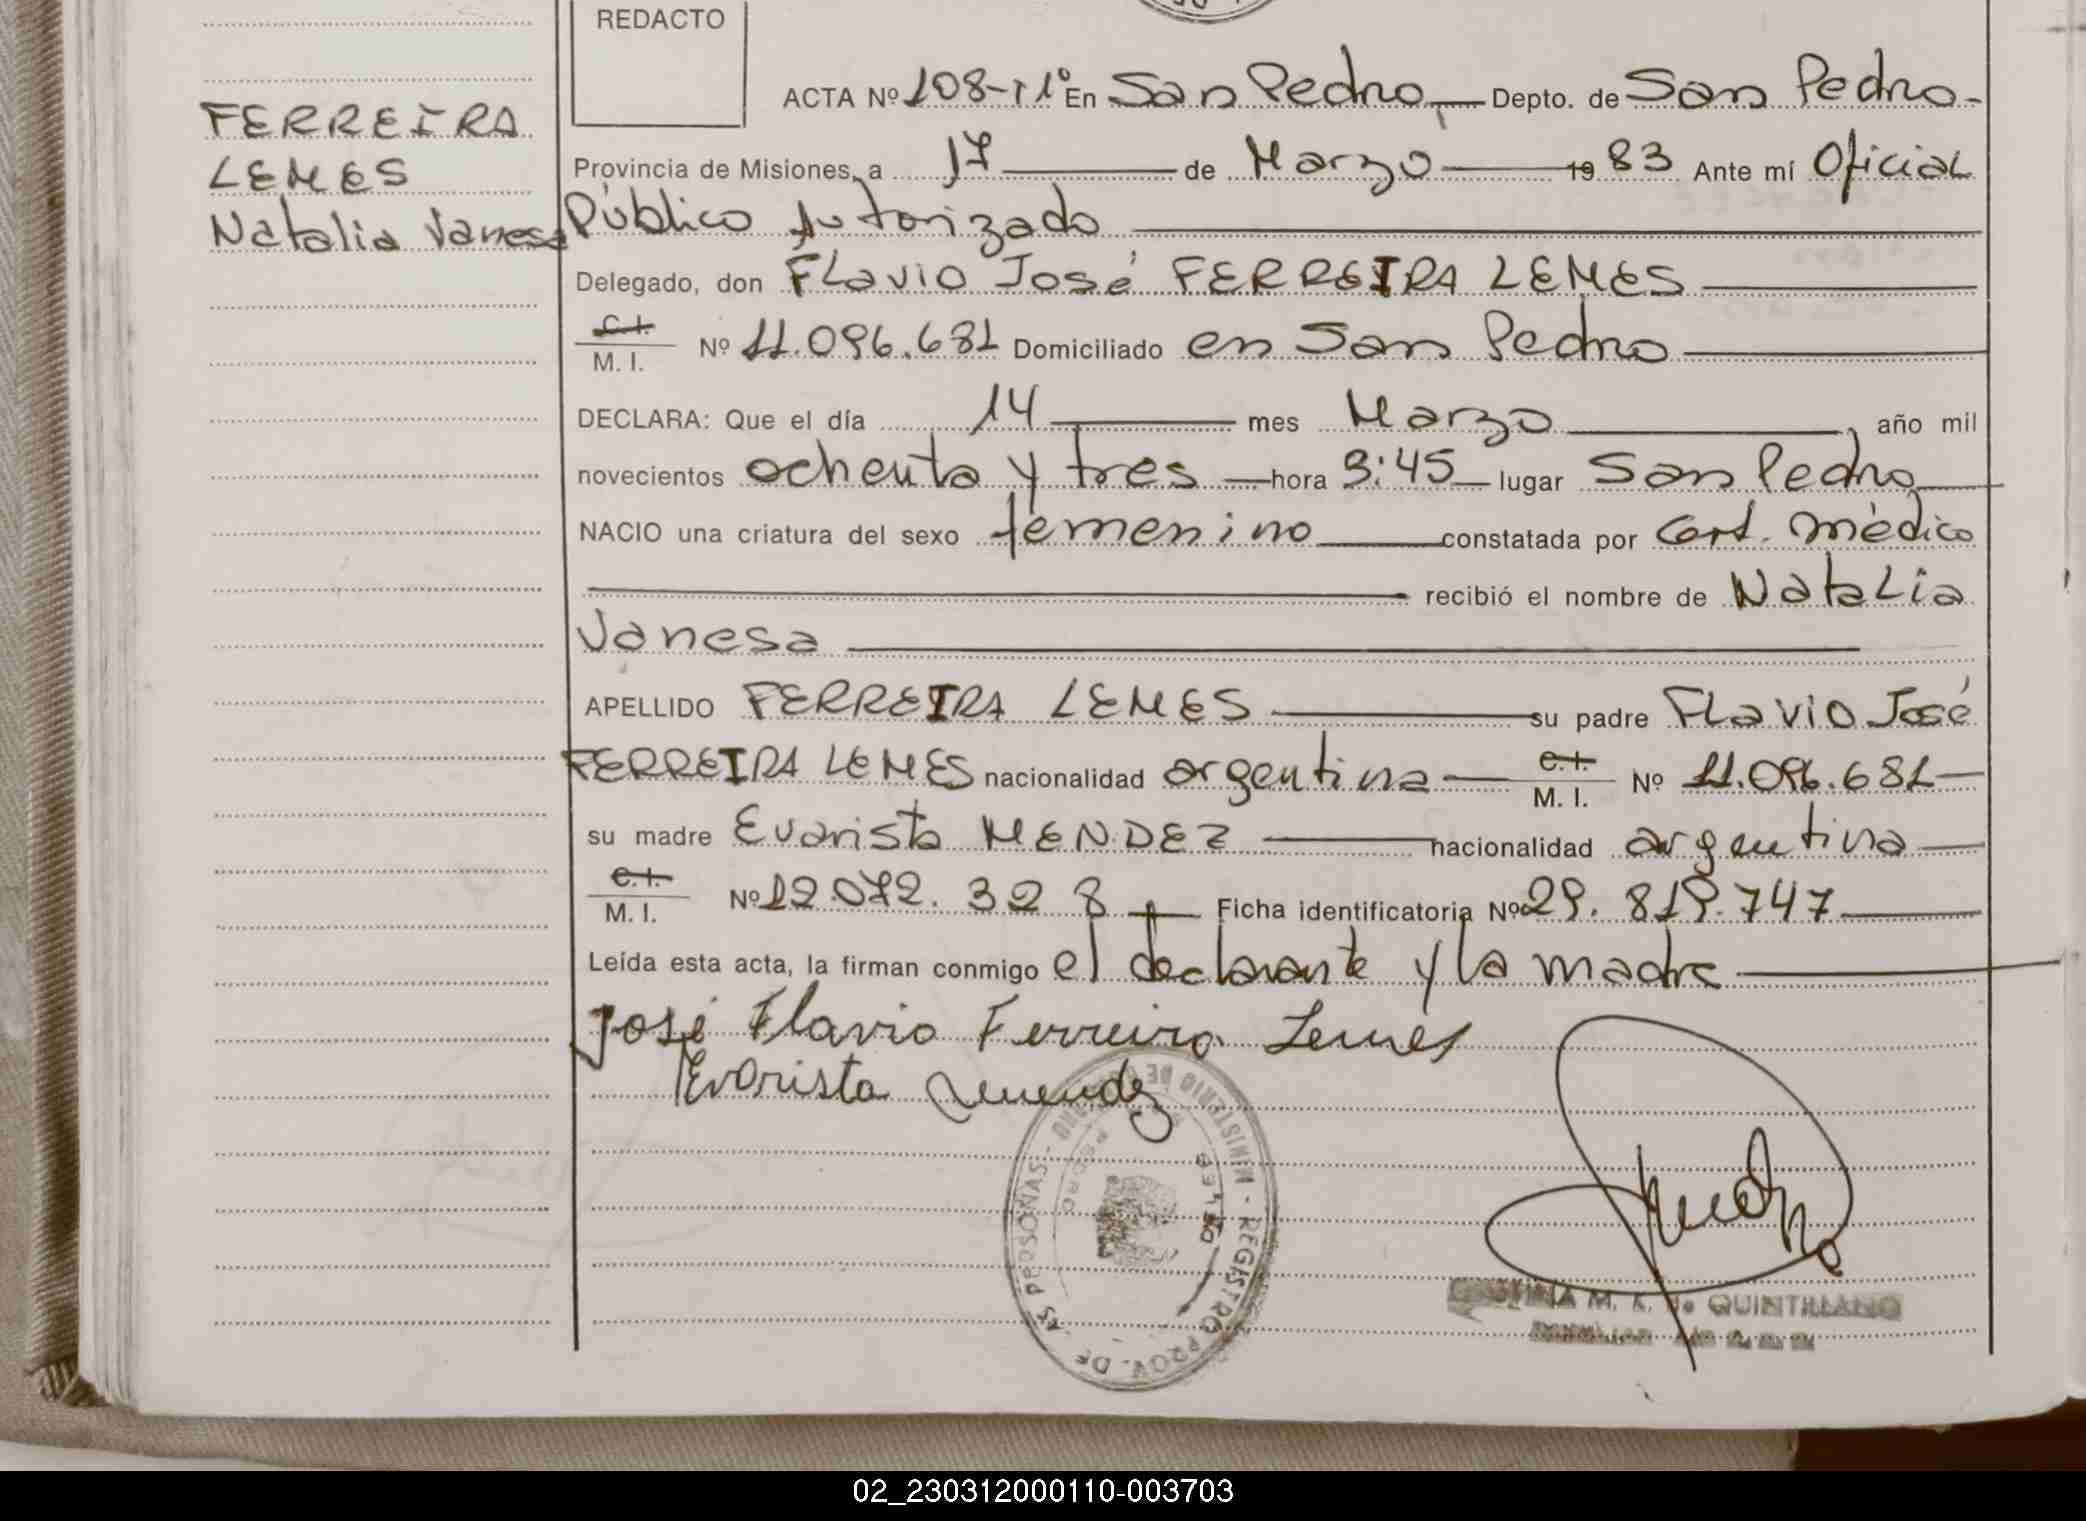 REDACTO
FERREIRA
LEMES
Natalia Vanesa
ACTA Nº 108-T1º En San Pedro Depto. de San Pedro
Provincia de Misiones, a 17 de Marzo 1983 Ante mí Oficial
Público Autorizado
Delegado, don Flavio José FERREIRA LEMES
C.I.
M. I. Nº 11.096.681 Domiciliado en San Pedro
DECLARA: Que el día 14 mes Marzo, año mil
novecientos ochenta y tres hora 3:45 lugar San Pedro
NACIO una criatura del sexo femenino constatada por Cert. médico
recibió el nombre de Natalia
Vanesa
APELLIDO FERREIRA LEMES su padre Flavio José
FERREIRA LEMES nacionalidad argentina C.I.
M. I. Nº 11.096.681
su madre Evarista MENDEZ nacionalidad argentina
C.I.
M. I. Nº 12.072.328 Ficha identificatoria Nº 29.819.747
Leída esta acta, la firman conmigo el declarante y la madre
José Flavio Ferreira Lemes
Evarista Mendez
MINISTERIO DE - REGISTRO PROV. DE LAS PERSONAS -
M. K. de QUINTILLANO
02_230312000110-003703